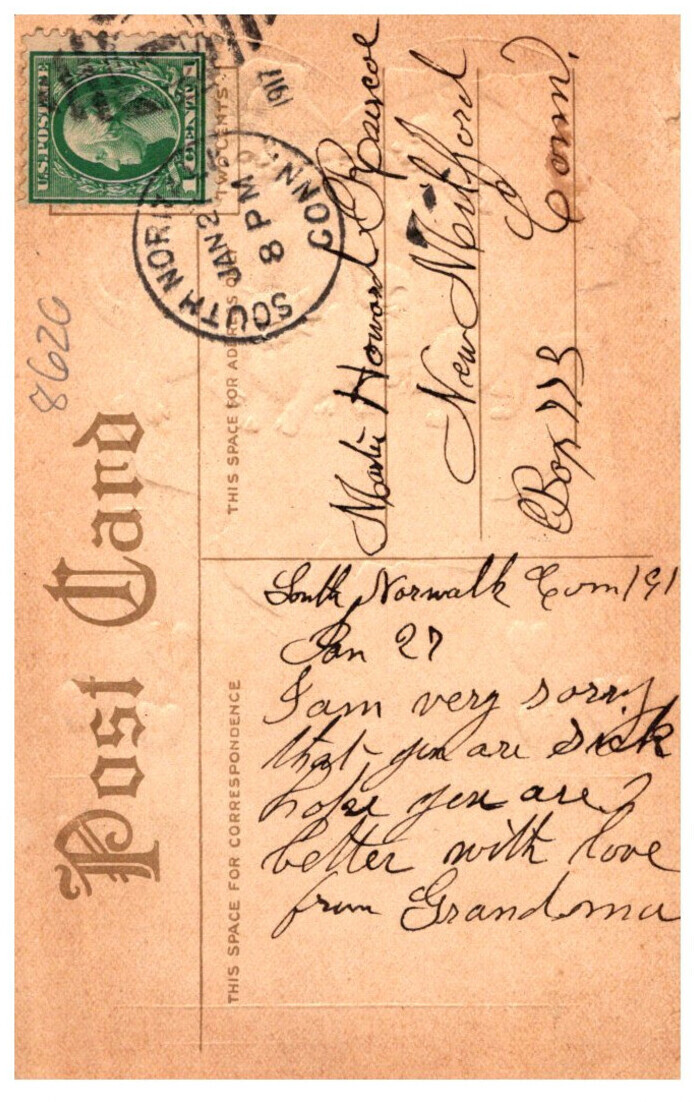 Post Card
THIS SPACE FOR ADDRESS ON
TWO CENTS
U.S. POSTAGE
1 CENT 1
SOUTH NOR
JAN 2
8 PM
CONN.
1917
8620
Howard
New Milford
Conn.
Box 113
THIS SPACE FOR CORRESPONDENCE
South Norwalk Conn 191
Jan 27
I am very sorry
that you are sick
hope you are
better with love
from Grandma